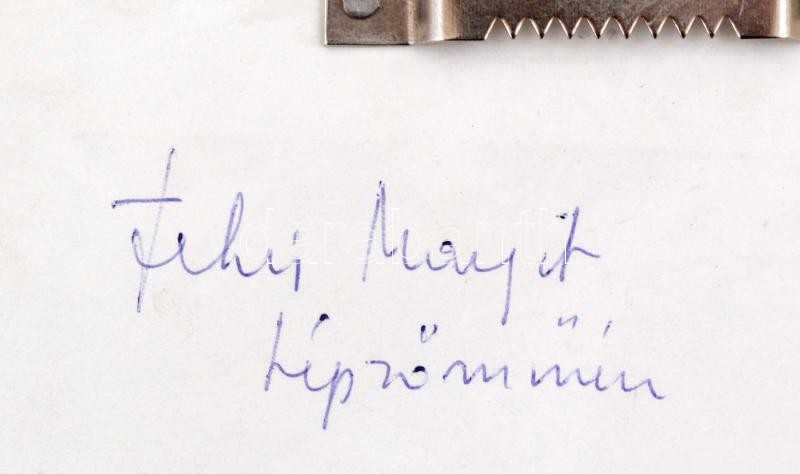 Fehér Margit
képzőművén
darabanth